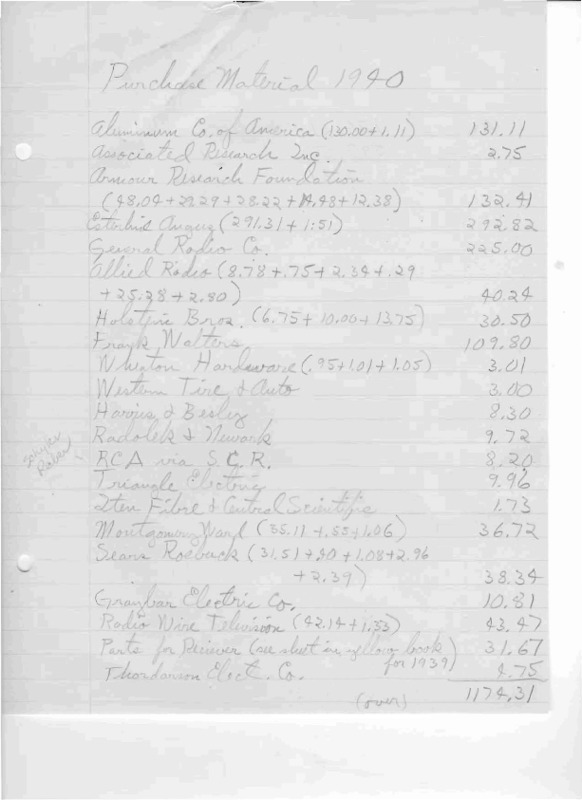 Purchase Material 1940
Aluminum Co. of America (130.00+1.11) 131.11
Associated Research Inc. 2.75
Armour Research Foundation
(48.04+29.29+28.22+14.48+12.38) 132.41
Esterline Angus (291.31+1.51) 292.82
General Radio Co. 225.00
Allied Radio (8.78+.75+2.34+.29
+25.28+2.80) 40.24
Bros. (6.75+10.00+13.75) 30.50
Frank Walters 109.80
Wheaton Hardware (.95+1.01+1.05) 3.01
Western Tire & Auto 3.00
& Besley 8.30
Radolek & Newark 9.72
RCA via S.C.R. 8.20
Triangle Electric 9.96
Fibre & Central Scientific 1.73
Montgomery Ward (35.11+.55+1.06) 36.72
Sears Roebuck (31.51+ +1.08+2.96
+2.39) 38.34
Graybar Electric Co. 10.81
Radio Wire Television (42.14+1.33) 43.47
Parts for Reciever (see sheet in yellow book) 31.67
for 1939)
Thordarson Elect. Co. 4.75
1174.31
(over)